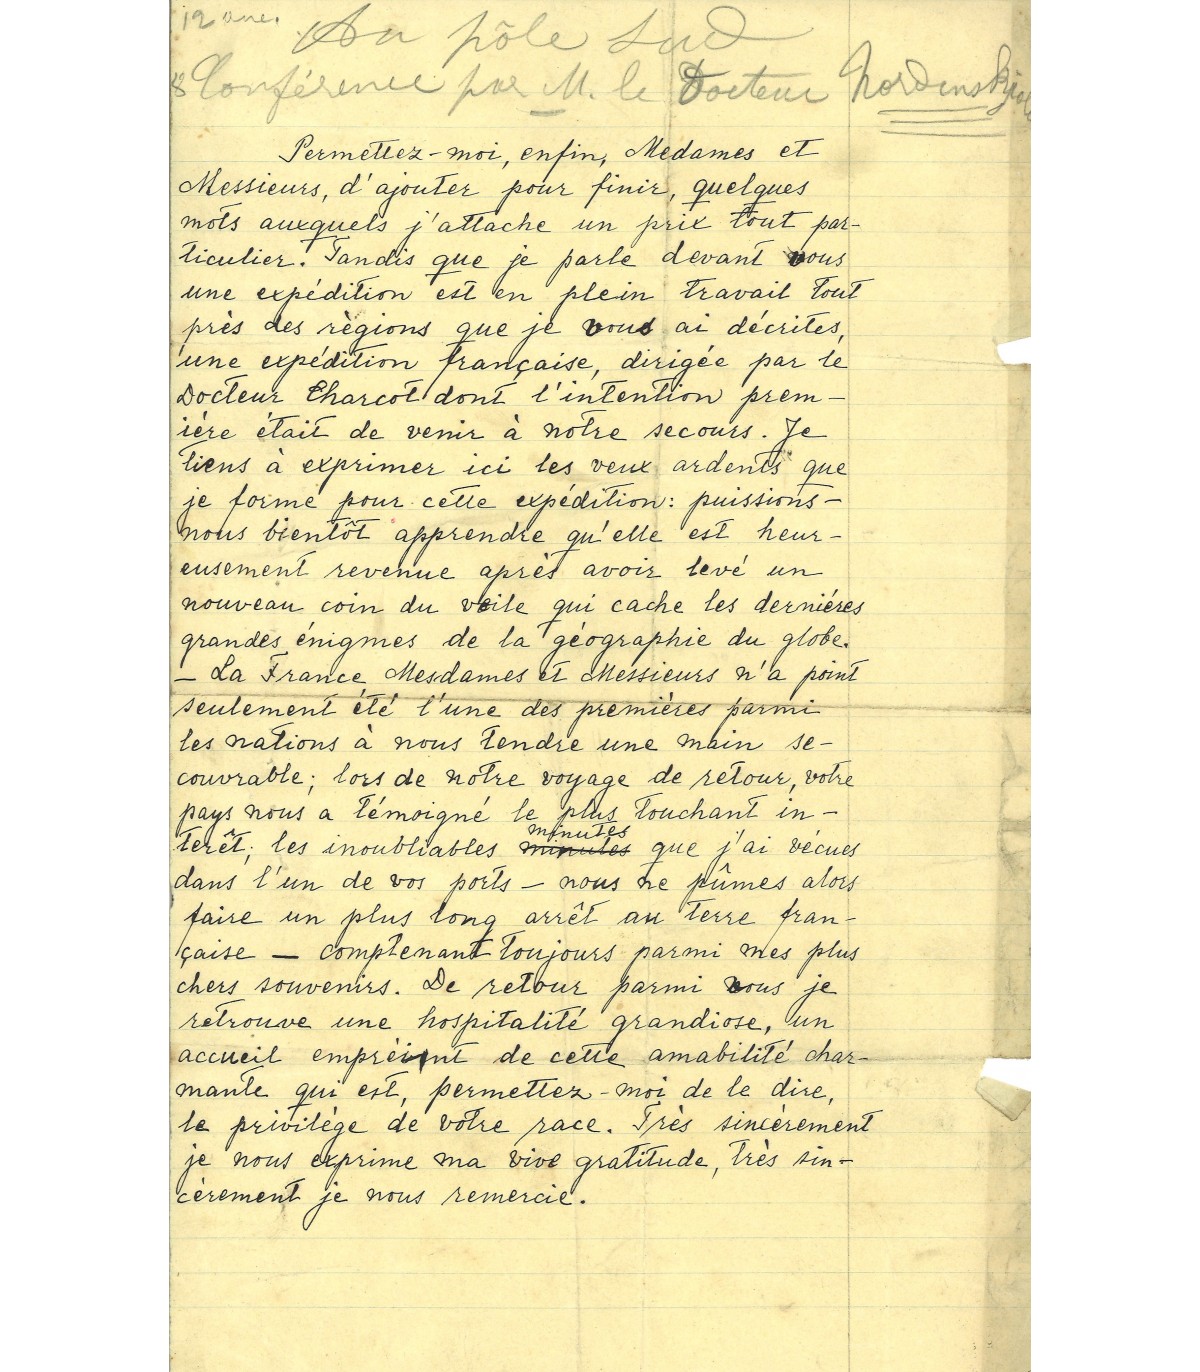 Au pôle sud
Conférence par M. le Docteur Nordenskjold
Permettez-moi, enfin, Medames et
Messieurs, d'ajouter pour finir, quelques
mots auxquels j'attache un prix tout par-
ticulier. Tandis que je parle devant vous
une expédition est en plein travail tout
près des règions que je vous ai décrites,
une expédition française, dirigée par le
Docteur Charcot dont l'intention prem-
iére était de venir à notre secours. Je
tiens à exprimer ici les veux ardents que
je forme pour cette expédition: puissions-
nous bientôt apprendre qu'elle est heur-
eusement revenue après avoir levé un
nouveau coin du voile qui cache les derniéres
grandes énigmes de la géographie du globe.
- La France Mesdames et Messieurs n'a point
seulement été l'une des premières parmi
les nations à nous tendre une main se-
couvrable; lors de notre voyage de retour, votre
pays nous a témoigné le plus touchant in-
minutes
terêt; les inoubliables minutes que j'ai vécues
dans l'un de vos ports - nous ne pûmes alors
faire un plus long arrêt au terre fran-
çaise - comptenant toujours parmi mes plus
chers souvenirs. De retour parmi vous je
retrouve une hospitalité grandiose, un
accueil empreint de cette amabilité char-
mante qui est, permettez-moi de le dire,
le privilége de votre race. Très sincérement
je nous exprime ma vive gratitude, très sin-
cérement je nous remercie.